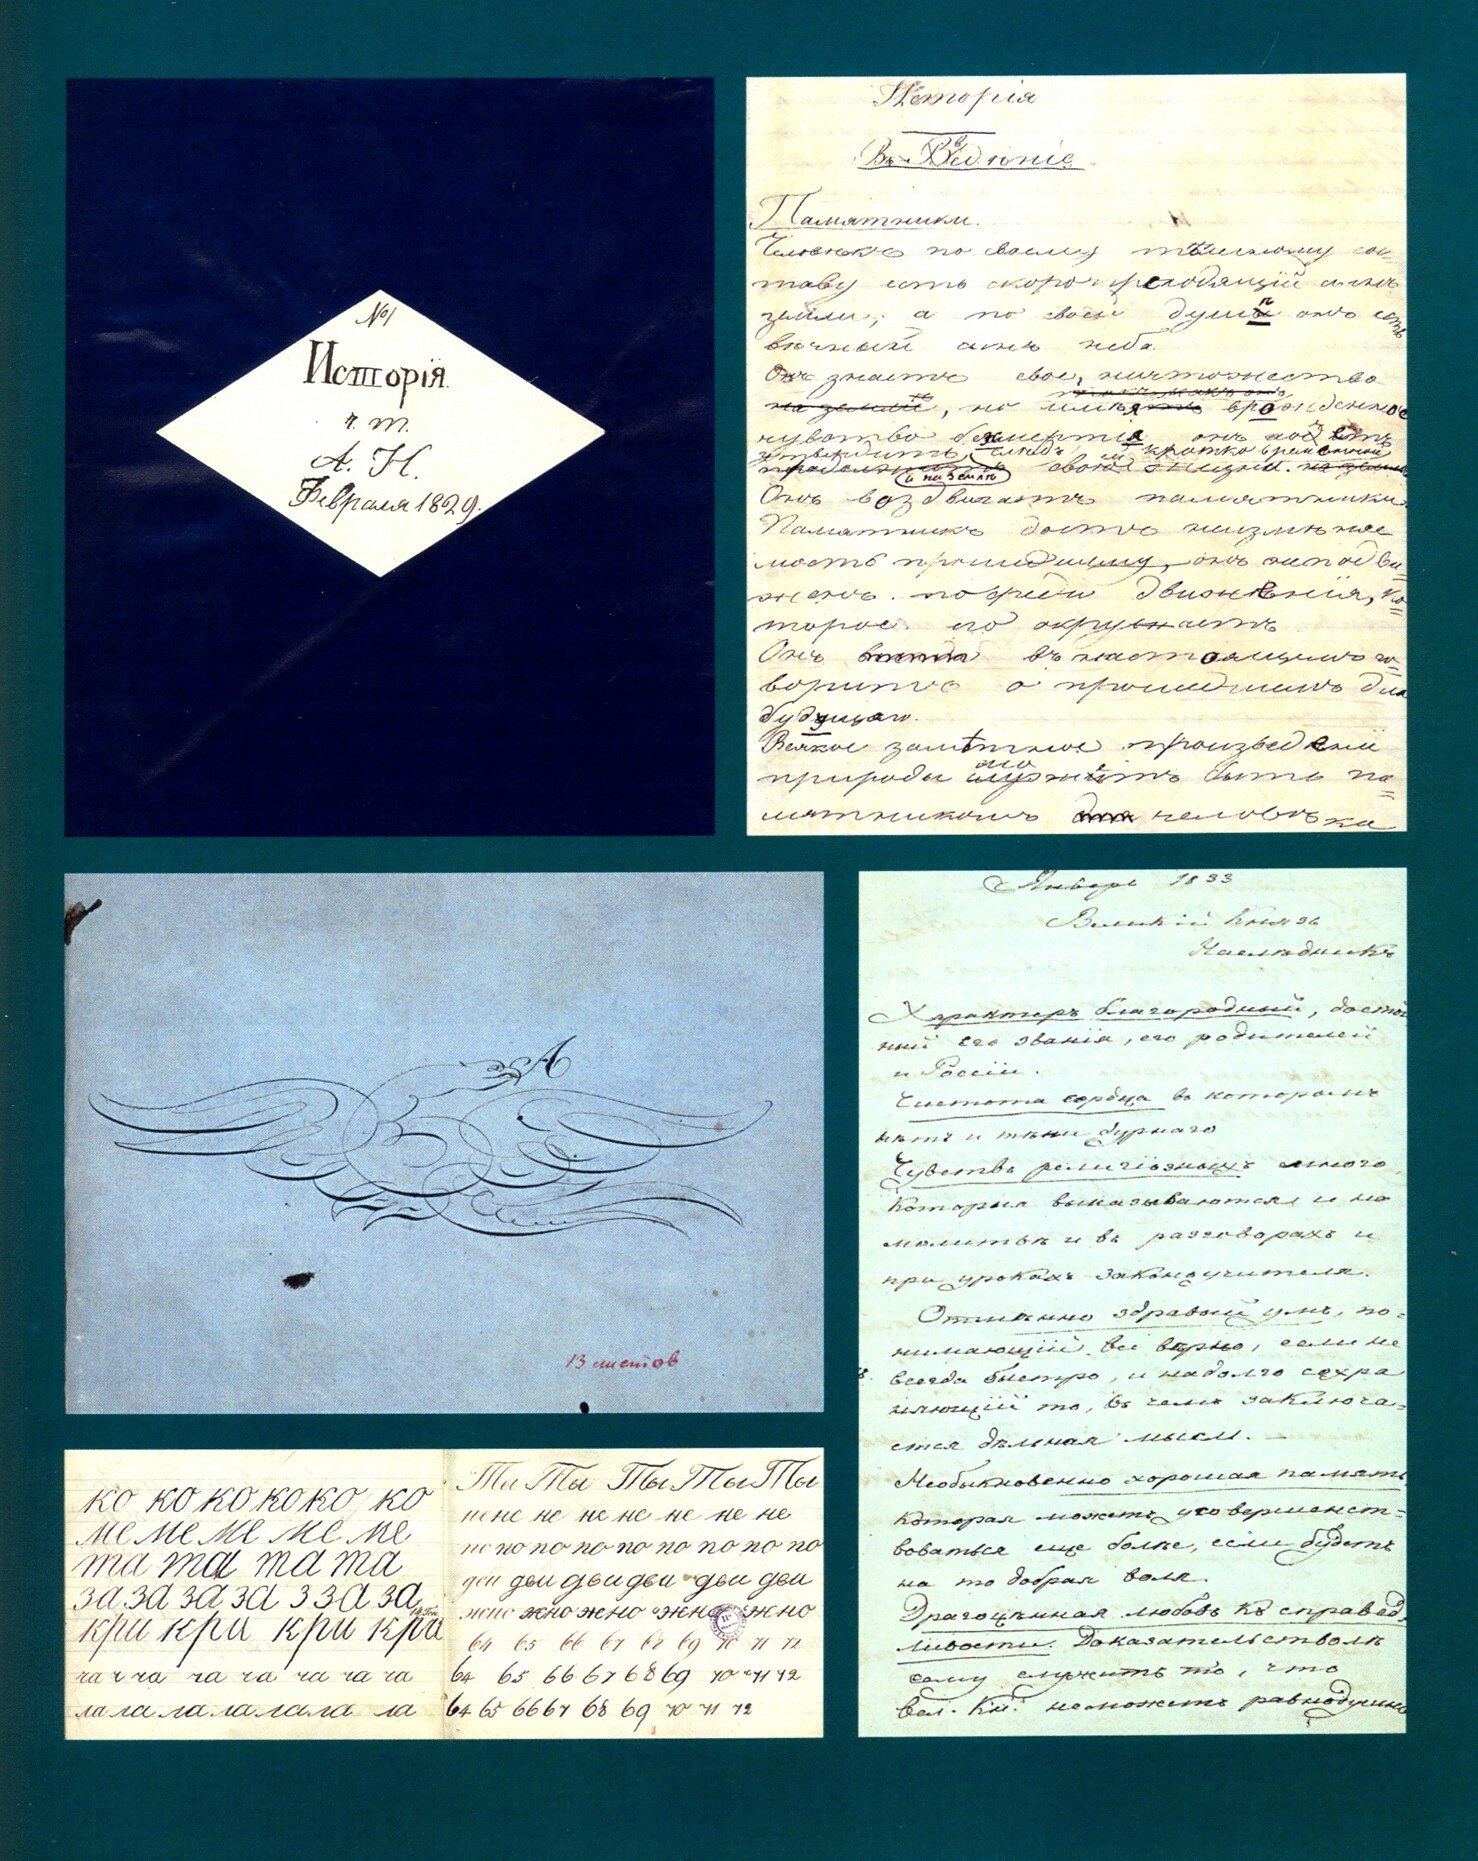 №1
Исторія
ч. т.
А. Н.
Февраля 1829.
Исторія
Въ Ведѣніе
Памятники.
Человѣкъ по своему тѣлесному сос
таву есть скоропреходящій
земли, а по своей души онъ есть
вѣчный неба.
Онъ знаетъ свое ничтожество
на землѣ, но имѣя врожденное
чувство безсмертія, онъ
кратковременной
свою жизни. на землѣ
и на землѣ
Онъ воздвигаетъ памятники.
Памятникъ даетъ неизмѣняе
мость прошедшему, онъ неподви=
женъ посреди движенія, ко=
торое его окружаетъ
Онъ въ настоящемъ го=
воритъ о прошедшемъ для
будущаго.
Всякое замѣтное произведеніе
природы можетъ быть па=
мятникомъ для человѣка
А
13 листов
ко ко ко ко ко ко
ме ме ме ме ме
та та та та
за за за за з за за
кри кри кри кри
ча ч ча ча ча ча ча ча
ла ла ла ла ла ла ла
Ты Ты Ты Ты Ты
не не не не не не не не
но но но но но но но но но
дви дви дви дви дви дви
жно жно жно жно жно
64 65 66 67 68 69 70 71 72
64 65 66 67 68 69 70 71 72
64 65 66 67 68 69 70 71 72
Январь 1833
Великій Князь
Наслѣдникъ
Характеръ благородный, достой
ный его званія, его родителей
и Россіи.
Чистота сердца въ которомъ
нѣтъ и тѣни дурнаго
Чувствъ религіозныхъ много,
которыя выказываются и на
молитвѣ и въ разговорахъ и
при урокахъ законоучителя.
Отмѣнно здравый умъ, по=
нимающій все вѣрно, если не
всегда быстро, и надолго сохра
няющій то, въ чемъ заключа=
ется дѣльная мысль.
Необыкновенно хорошая память
которая можетъ усовершенст=
воваться еще болѣе, если будетъ
на то добрая воля.
Драгоцѣнная любовь къ справед=
ливости. Доказательствомъ
сему служитъ то, что
Вел. Кн. неможетъ равнодушно